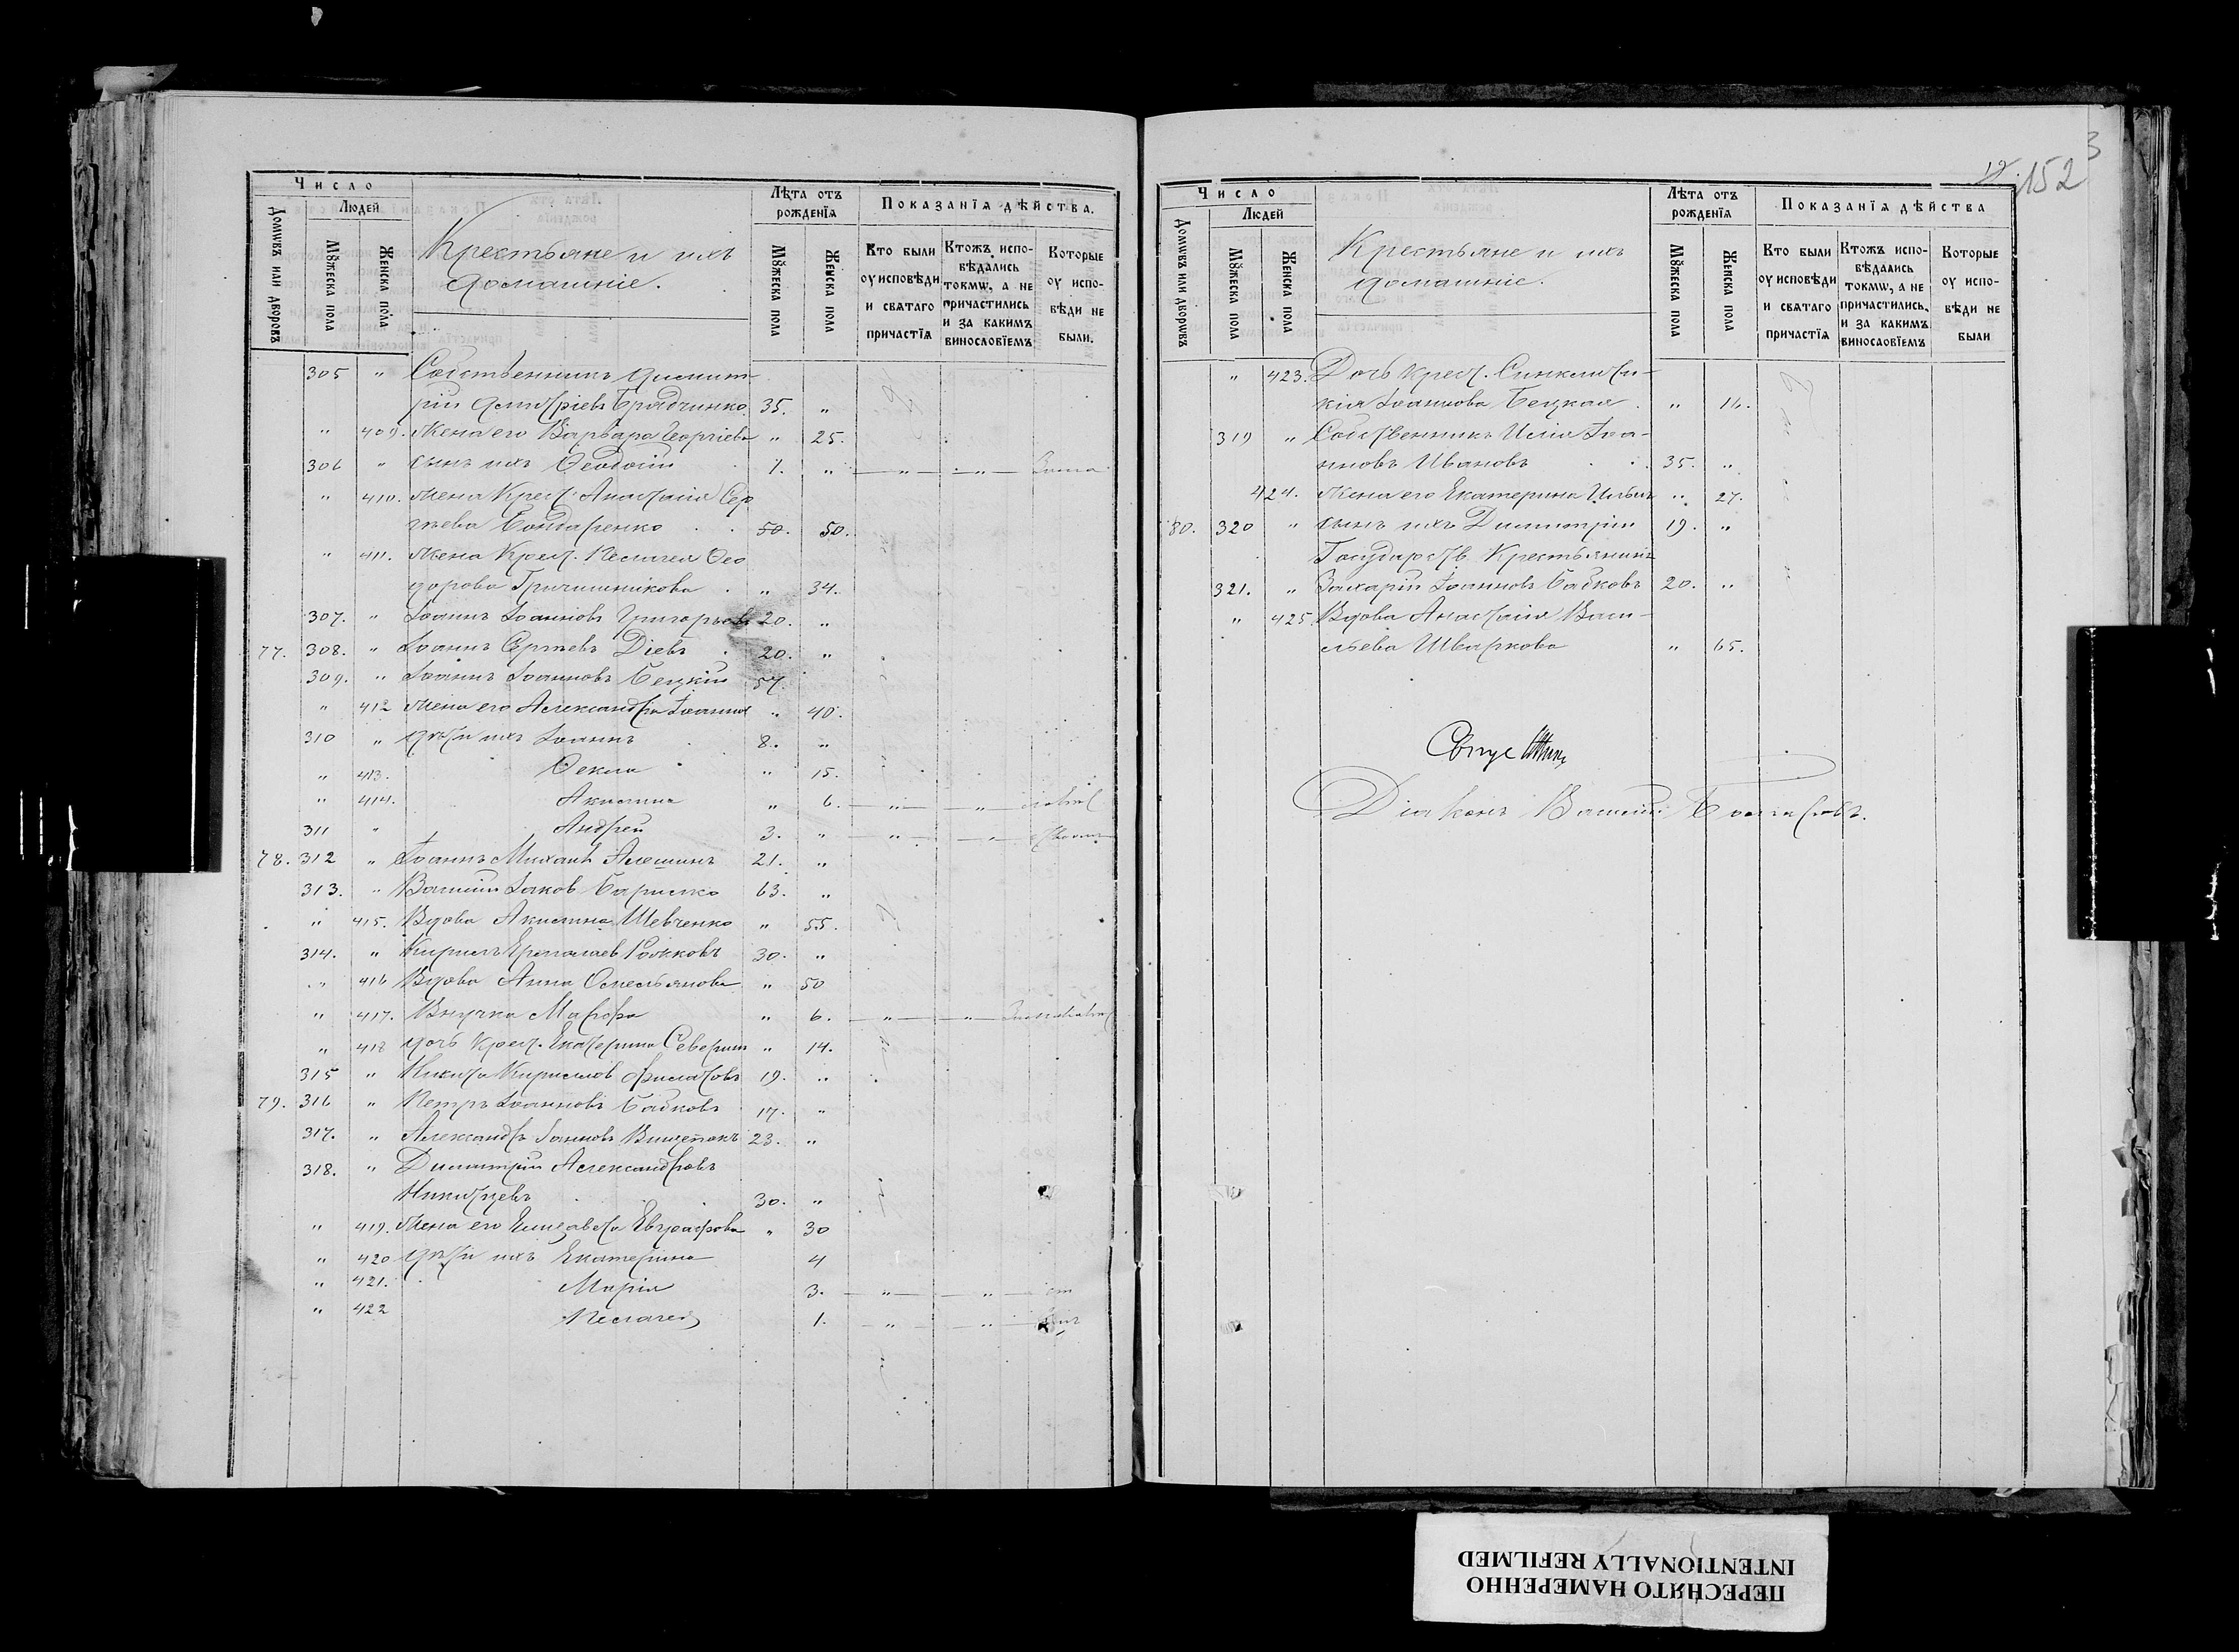 Число
Людей
Домѡвъ или дворовъ
Мꙋжеска пола
Женска пола
Крестьяне и ихъ
домашніе.
Лѣта отъ
рожденїѧ
Мꙋжеска пола
Женска пола
Показанїѧ дѣйства.
Кто были
оу исповѣди
и свѧтаго
причастїѧ
Ктожъ испо-
вѣдались
токмѡ, а не
причастились
и за какимъ
винословїемъ
Которые
оу испо-
вѣди не
были.
305 " Собственникъ Димит-
рій 35. "
" 409. Жена его Варвара Георгіева " 25.
306 " сынъ ихъ Ѳеодосій 1. " " "
" 410. Жена Крест. Анастасія Сер
гѣева Бондаренко 50. 50.
" 411. Жена Крест. Пелагея Ѳео
дорова " 34.
307. " Іоаннъ Іоанновъ Григорьевъ 20. "
77. 308. " Іоаннъ Сергѣевъ Діевъ 20. "
309. " Іоаннъ Іоанновъ Бецкій 57.
" 412 Жена его Александра Іоаннов " 40.
310 " дѣти ихъ Іоаннъ 8. "
" 413. Ѳекла " 15.
" 414. Акилина " 6. " "
311 " Андрей 3. " " "
78. 312 " Іоаннъ Михаил Алешинъ 21. "
313. " Василій Іаков 63. "
" 415. Вдова Акилина Шевченко " 55.
314. " Кирилъ Ермолаев Рожковъ 30. "
" 416 Вдова Анна Омельянова " 50
" 417. Внучка Марфа " 6. " "
" 418 дочь Крест. Екатерина " 14.
315 " Никита Кириллов Филатовъ 19. "
79. 316 " Петръ Іоанновъ Бабковъ 17. "
317. " Александръ Іоаннов 23. "
318. " Димитрій Александровъ
30. "
" 419. Жена его Елизавета Евграфова " 30
" 420 дѣти ихъ Екатерина 4
" 421. Марія 3. " "
" 422 Пелагея 1. " "
152
Число
Людей
Домѡвъ или дворѡвъ
Мꙋжеска пола
Женска пола
Крестьяне и ихъ
домашніе.
Лѣта отъ
рожденїѧ
Мꙋжеска пола
Женска пола
Показанїѧ дѣйства
Кто были
оу исповѣди
и свѧтаго
причастїѧ
Ктожъ испо-
вѣдались
токмѡ, а не
причастились,
и за какимъ
винословїемъ
Которые
оу испо-
вѣди не
были
" 423. Дочь Крест. Синклити-
кія Іоаннова Бецкая " 16.
319 " Собственникъ Илія Іоа-
нновъ Ивановъ 35. "
424. Жена его Екатерина " 27.
80. 320 " сынъ ихъ Димитрій 19. "
Государств. Крестьянинъ
321. " Захарій Іоанновъ Бабковъ 20. "
" 425. Вдова Анастасія Васи-
льева Шваркова " 65.
Діаконъ Василій
ПЕРЕСНЯТО НАМЕРЕННО
INTENTIONALLY REFILMED